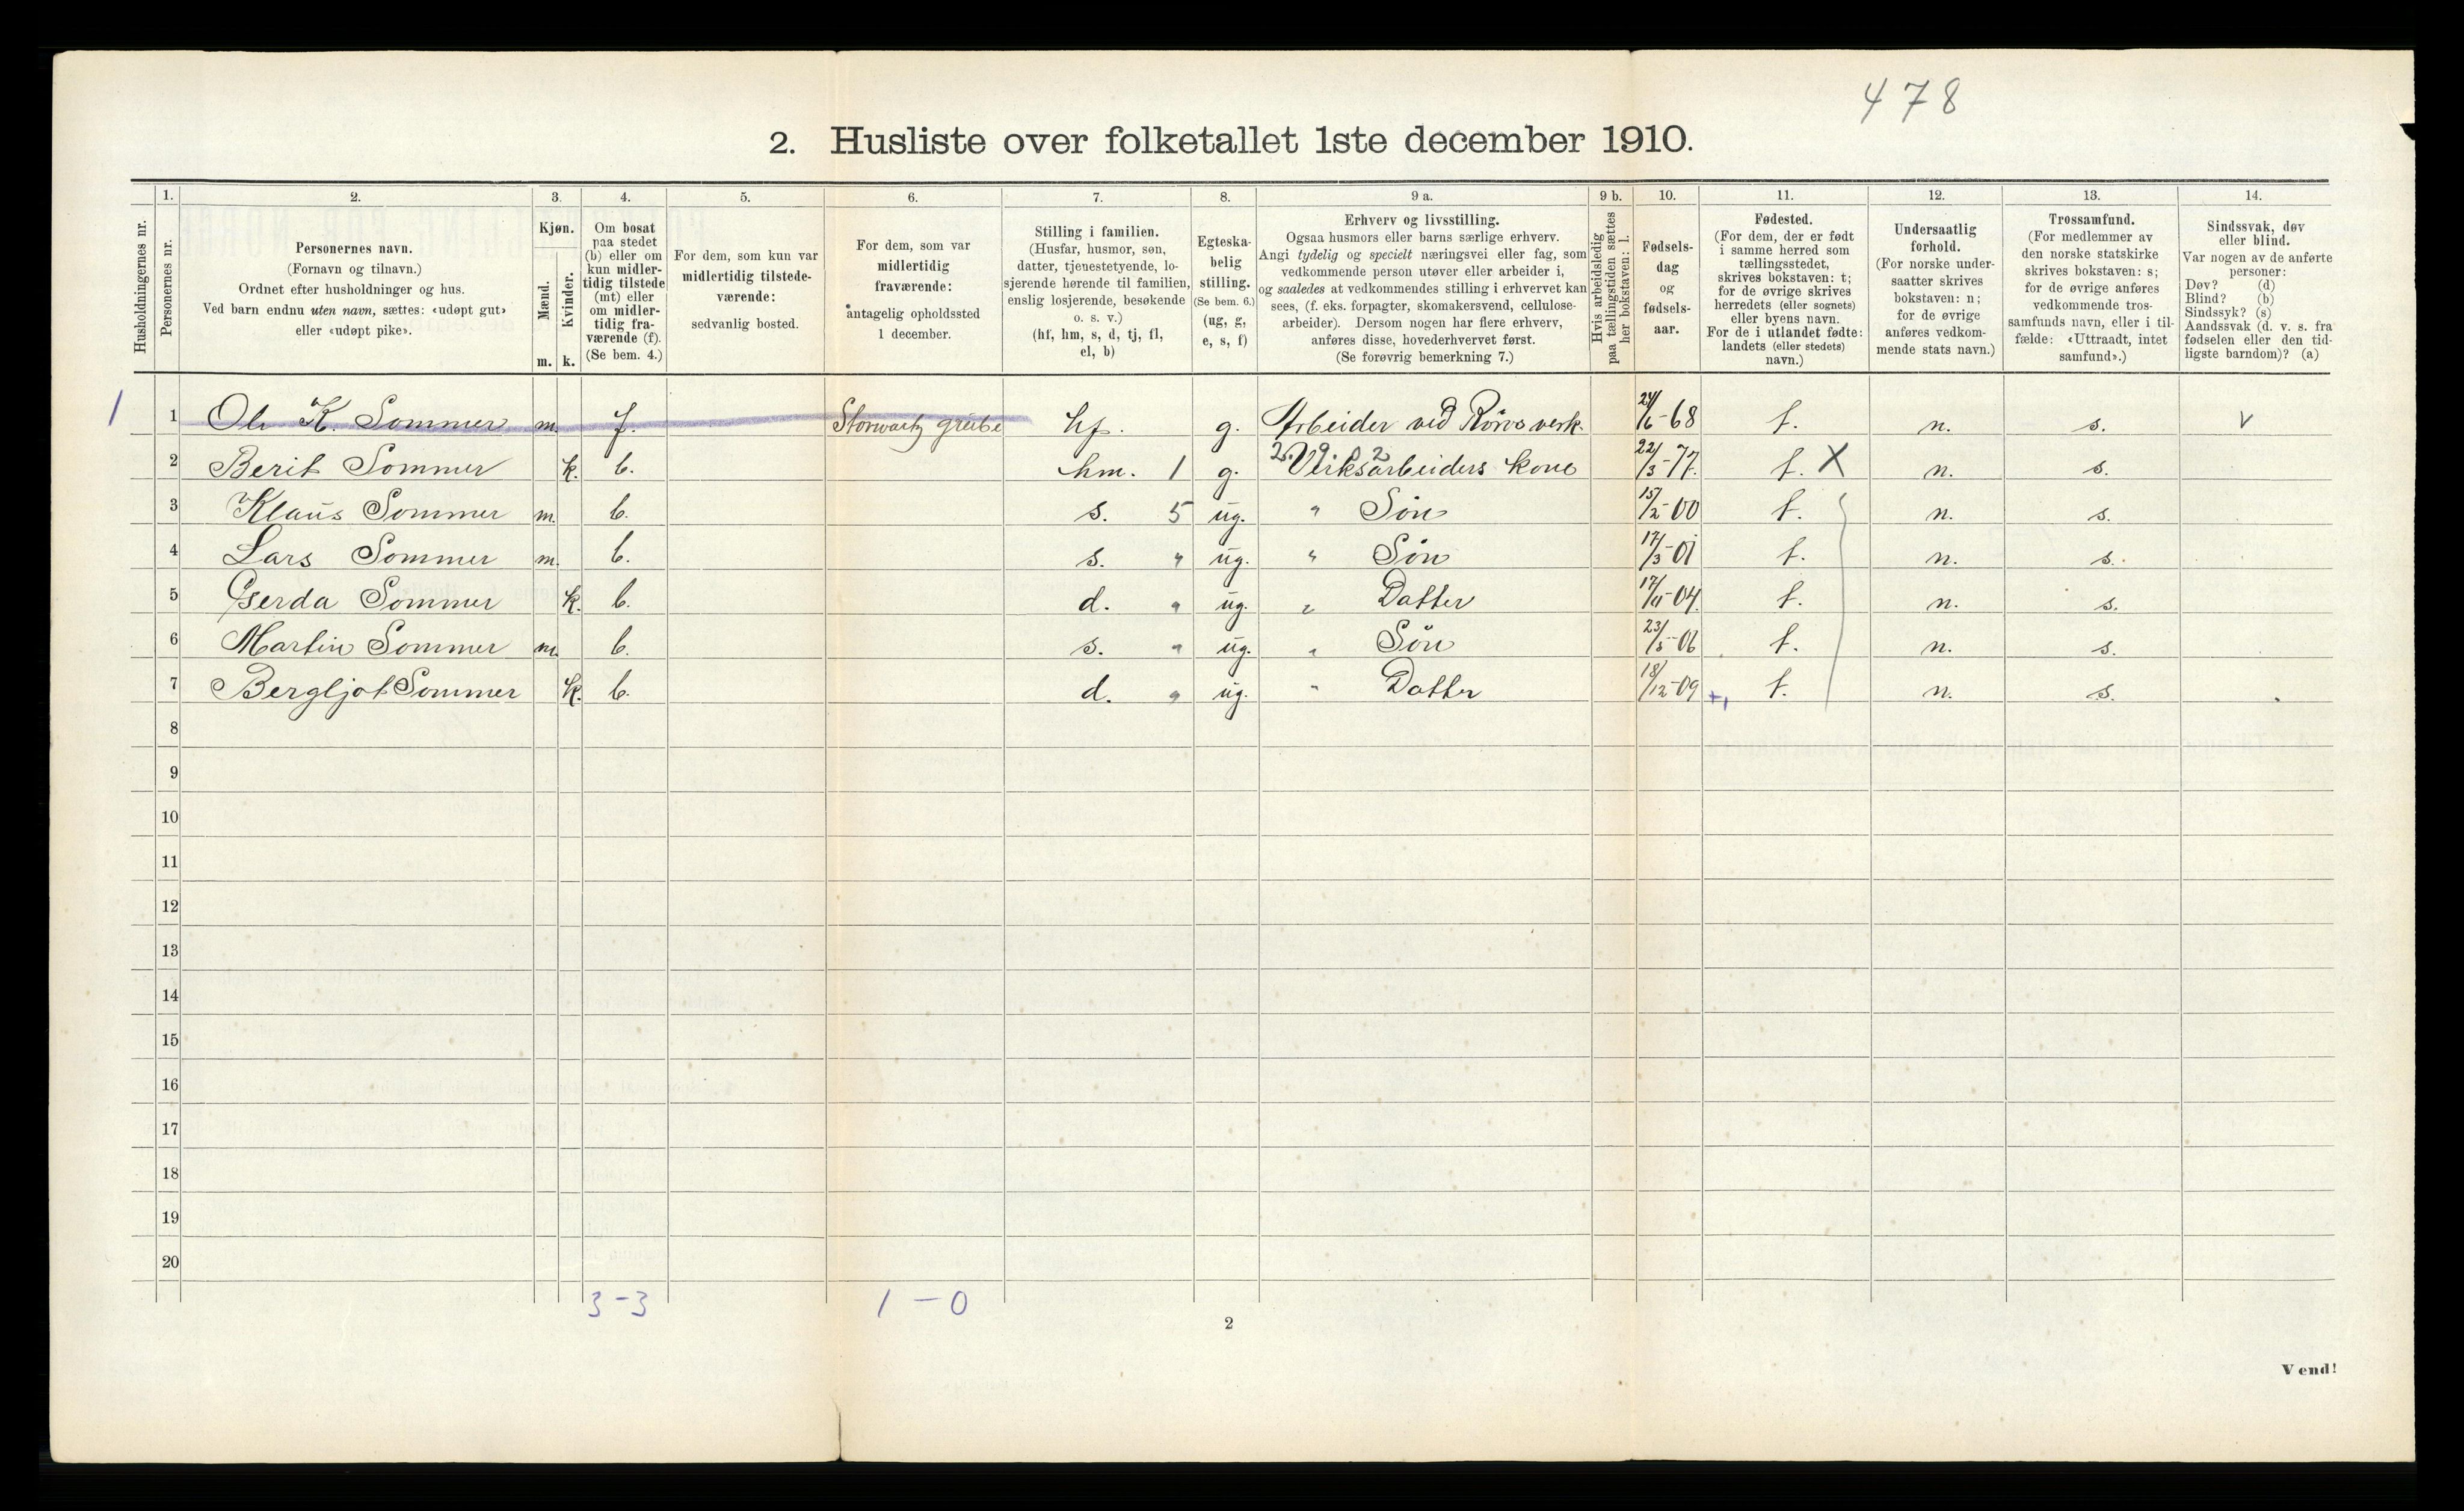 478
2. Husliste over folketallet 1ste december 1910.
Husholdningernes nr.
1.
Personernes nr.
2.
Personernes navn.
(Fornavn og tilnavn.)
Ordnet efter husholdninger og hus.
Ved barn endnu uten navn, sættes: «udøpt gut»
eller «udøpt pike».
3.
Kjøn.
Mænd.
Kvinder.
m. k.
4.
Om bosat
paa stedet
(b) eller om
kun midler-
tidig tilstede
(mt) eller
om midler-
tidig fra-
værende (f).
(Se bem. 4.)
5.
For dem, som kun var
midlertidig tilstede-
værende:
sedvanlig bosted.
6.
For dem, som var
midlertidig
fraværende:
antagelig opholdssted
1 december.
7.
Stilling i familien.
(Husfar, husmor, søn,
datter, tjenestetyende, lo-
sjerende hørende til familien,
enslig losjerende, besøkende
o. s. v.)
(hf, hm, s, d, tj, fl,
el, b)
8.
Egteska-
belig
stilling.
(Se bem. 6.)
(ug, g,
e, s, f)
9 a.
Erhverv og livsstilling.
Ogsaa husmors eller barns særlige erhverv.
Angi tydelig og specielt næringsvei eller fag, som
vedkommende person utøver eller arbeider i,
og saaledes at vedkommendes stilling i erhvervet kan
sees, (f. eks. forpagter, skomakersvend, cellulose-
arbeider). Dersom nogen har flere erhverv,
anføres disse, hovederhvervet først.
(Se forøvrig bemerkning 7.)
9 b.
Hvis arbeidsledig
paa tællingstiden sættes
her bokstaven: l.
10.
Fødsels-
dag
og
fødsels-
aar.
11.
Fødested.
(For dem, der er født
i samme herred som
tællingsstedet,
skrives bokstaven: t;
for de øvrige skrives
herredets (eller sognets)
eller byens navn.
For de i utlandet fødte:
landets (eller stedets)
navn.)
12.
Undersaatlig
forhold.
(For norske under-
saatter skrives
bokstaven: n;
for de øvrige
anføres vedkom-
mende stats navn.)
13.
Trossamfund.
(For medlemmer av
den norske statskirke
skrives bokstaven: s;
for de øvrige anføres
vedkommende tros-
samfunds navn, eller i til-
fælde: «Uttraadt, intet
samfund».)
14.
Sindssvak, døv
eller blind.
Var nogen av de anførte
personer:
Døv? (d)
Blind? (b)
Sindssyk? (s)
Aandssvak (d. v. s. fra
fødselen eller den tid-
ligste barndom)? (a)
1 1 Ole K. Sommer m. f. Storwartz grube hf. g. Arbeider ved Röros verk. 24/6-68 t. n. s. v
2 Berit Sommer k. b. hm. 1 g. Verksarbeiders kone 22/3-77. t. X n. s.
3 Klaus Sommer m. b. s. 5 ug. " Sön 15/2-00 t. n. s.
4 Lars Sommer m. b. s. " ug. " Sön 17/3-01 t. n. s.
5 Gerda Sommer k. b. d. " ug. " Datter 17/11-04. t. n. s.
6 Martin Sommer m. b. s. " ug. " Sön 23/5-06 t. n. s.
7 Bergljot Sommer k. b. d. " ug. " Datter 18/12-09 t. n. s.
8
9
10
11
12
13
14
15
16
17
18
19
20
3-3 1-0
2
Vend!